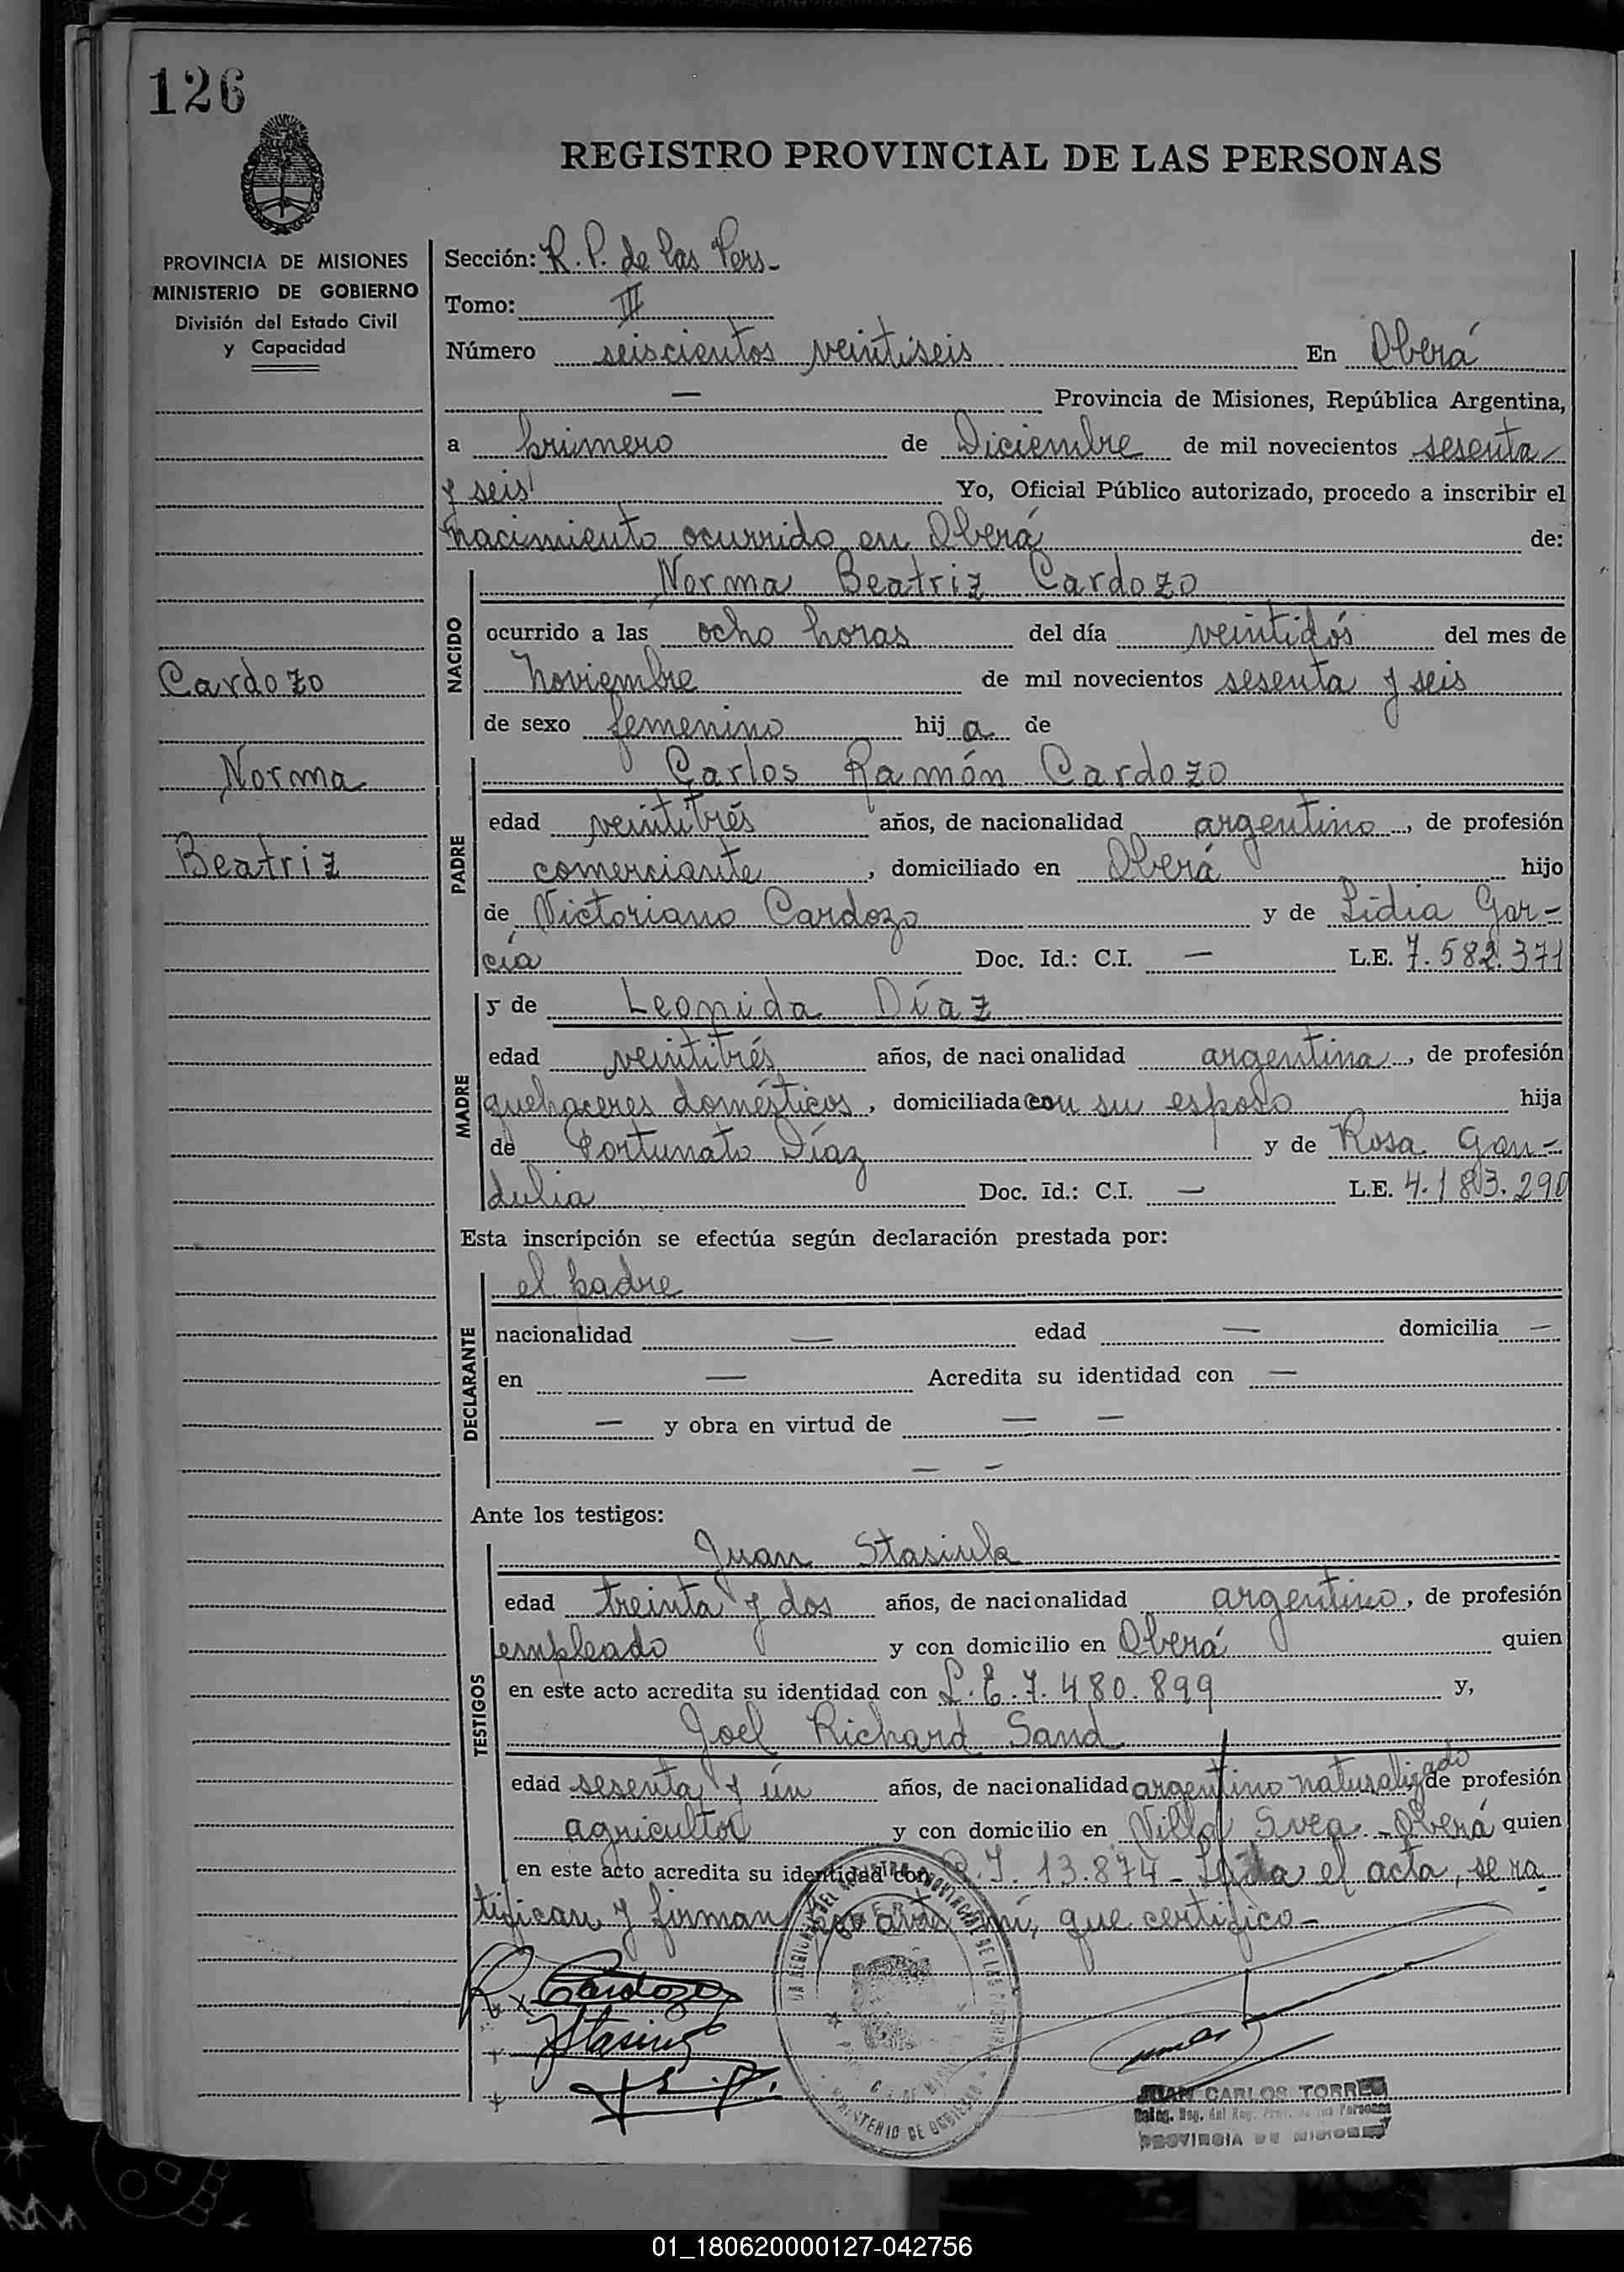 126
REGISTRO PROVINCIAL DE LAS PERSONAS
PROVINCIA DE MISIONES
MINISTERIO DE GOBIERNO
División del Estado Civil
y Capacidad
Cardozo
Norma
Beatriz
Sección: R. P. de las Pers-
Tomo: III
Número seiscientos veintiseis En Oberá
— Provincia de Misiones, República Argentina,
a primero de Diciembre de mil novecientos sesenta
y seis Yo, Oficial Público autorizado, procedo a inscribir el
nacimiento ocurrido en Oberá de:
NACIDO
Norma Beatriz Cardozo
ocurrido a las ocho horas del día veintidós del mes de
Noviembre de mil novecientos sesenta y seis
de sexo femenino hij a de
PADRE
Carlos Ramón Cardozo
edad veintitrés años, de nacionalidad argentino, de profesión
comerciante, domiciliado en Oberá hijo
de Victoriano Cardozo y de Lidia Gar-
cía Doc. Id.: C.I. — L.E. 7.582.371
MADRE
y de Leonida Díaz
edad veintitrés años, de nacionalidad argentina, de profesión
quehaceres domésticos, domiciliada con su esposo hija
de Fortunato Díaz y de Rosa Gan-
dulia Doc. Id.: C.I. — L.E. 4.183.290
Esta inscripción se efectúa según declaración prestada por:
DECLARANTE
el padre
nacionalidad — edad — domicilia —
en — Acredita su identidad con —
— y obra en virtud de — —
— —
Ante los testigos:
TESTIGOS
Juan Stasiula
edad treinta y dos años, de nacionalidad argentino, de profesión
empleado y con domicilio en Oberá quien
en este acto acredita su identidad con L.E. 7.480.899 y,
Joel Richard Sand
edad sesenta y ún años, de nacionalidad argentino naturalizado de profesión
agricultor y con domicilio en Villa Svea - Oberá quien
en este acto acredita su identidad con C.I. 13.874 - Leída el acta, se ra
tifican y firman por ante mí, que certifico-
R Cardozo
JUAN CARLOS TORRES
PROVINCIA DE MISIONES
MINISTERIO DE GOBIERNO
01_180620000127-042756